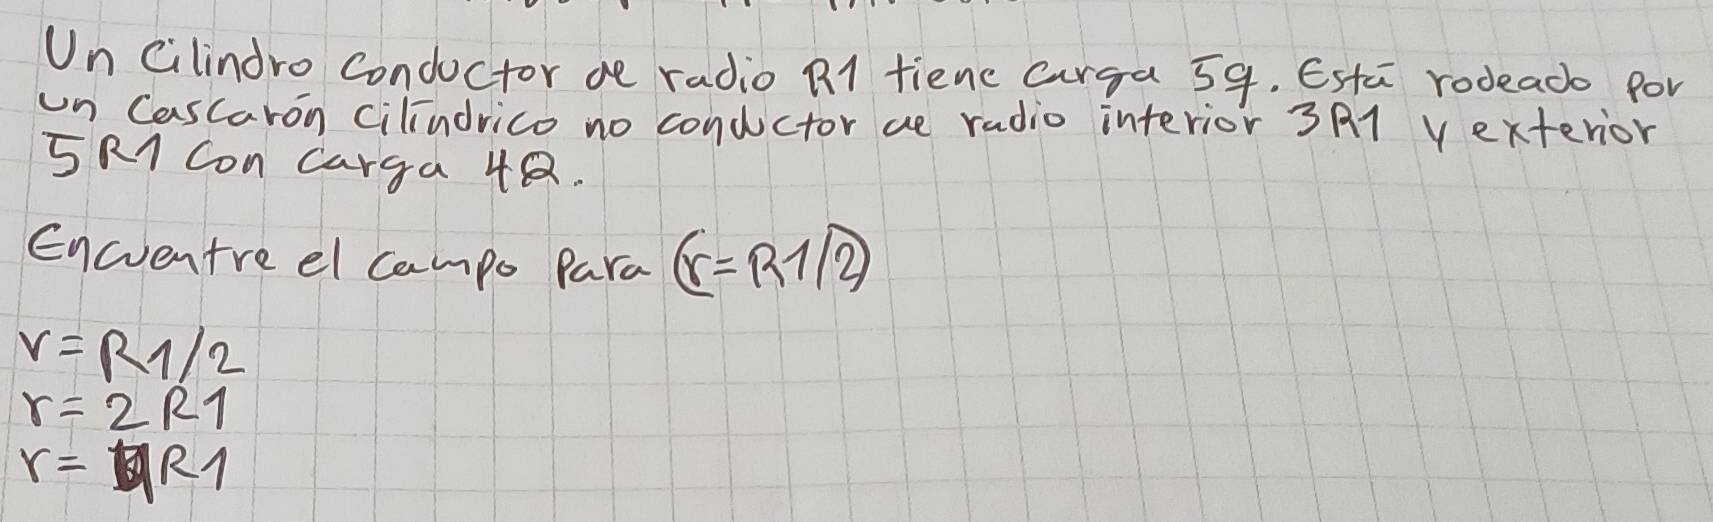 Un Cilindro conductor de radio R1 tiene carga 5q. Está rodeado por
un Cascarón cilíndrico no conductor de radio interior 3R1 y exterior
5R1 con carga 4Q.
Encuentre el campo para (r=R1/2)
r=R1/2
r=2R1
r= R1